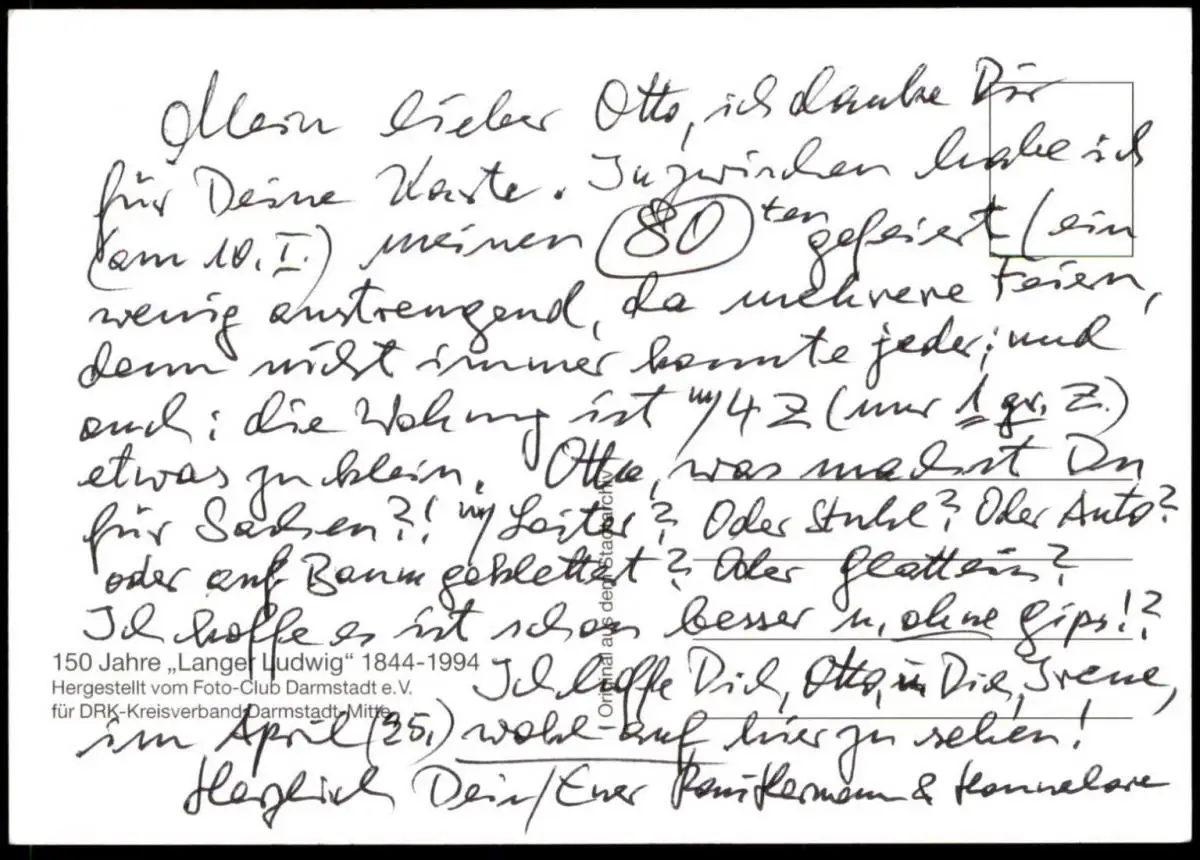 Mein lieber Otto, ich danke Dir
für Deine Karte. Inzwischen habe ich
(am 10. I.) meinen 80ten gefeiert (ein
wenig anstrengend, da mehrere Feiern,
denn nicht immer konnte jeder; und
auch: die Wohnung ist m/4 Z (nur 1 gr. Z.)
etwas zu klein. Otto, was machst Du
für Sachen?! Leiter? Oder Stuhl? Oder Auto?
oder auf Baum geklettert? Oder Glatteis?
Ich hoffe es ist schon besser u. ohne Gips!?
Ich hoffe Dich, Otto, u Dich, Irene,
im April (25.) wohl-auf hier zu sehen!
Herzlich Dein/Euer Hermann & Hannelore
150 Jahre „Langer Ludwig“ 1844-1994
Hergestellt vom Foto-Club Darmstadt e.V.
für DRK-Kreisverband Darmstadt-Mitte
Original aus dem Stadtarchiv